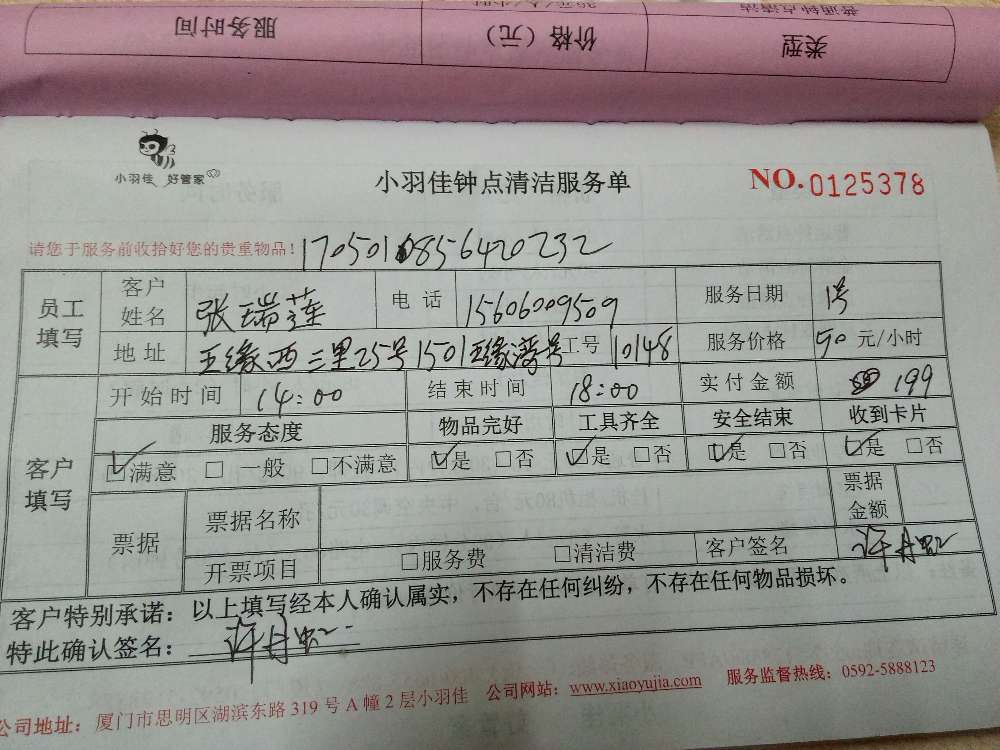 服务时间 价格（元） 类型
小羽佳 好管家
小羽佳钟点清洁服务单
NO.0125378
请您于服务前收拾好您的贵重物品！
员工填写 客户姓名 张瑞莲 电话 15606009509 服务日期 1号
地址 五缘西三里25号1501五缘湾 工号 10148 服务价格 50 元/小时
开始时间 14:00 结束时间 18:00 实付金额 199
客户填写 服务态度 物品完好 工具齐全 安全结束 收到卡片
☑满意 □ 一般 □不满意 ☑是 □否 ☑是 □否 ☑是 □否 ☑是 □否
票据 票据名称 票据金额
开票项目 □服务费 □清洁费 客户签名
客户特别承诺：以上填写经本人确认属实，不存在任何纠纷，不存在任何物品损坏。
特此确认签名：
公司地址：厦门市思明区湖滨东路 319 号 A 幢 2 层小羽佳 公司网站：www.xiaoyujia.com 服务监督热线：0592-5888123